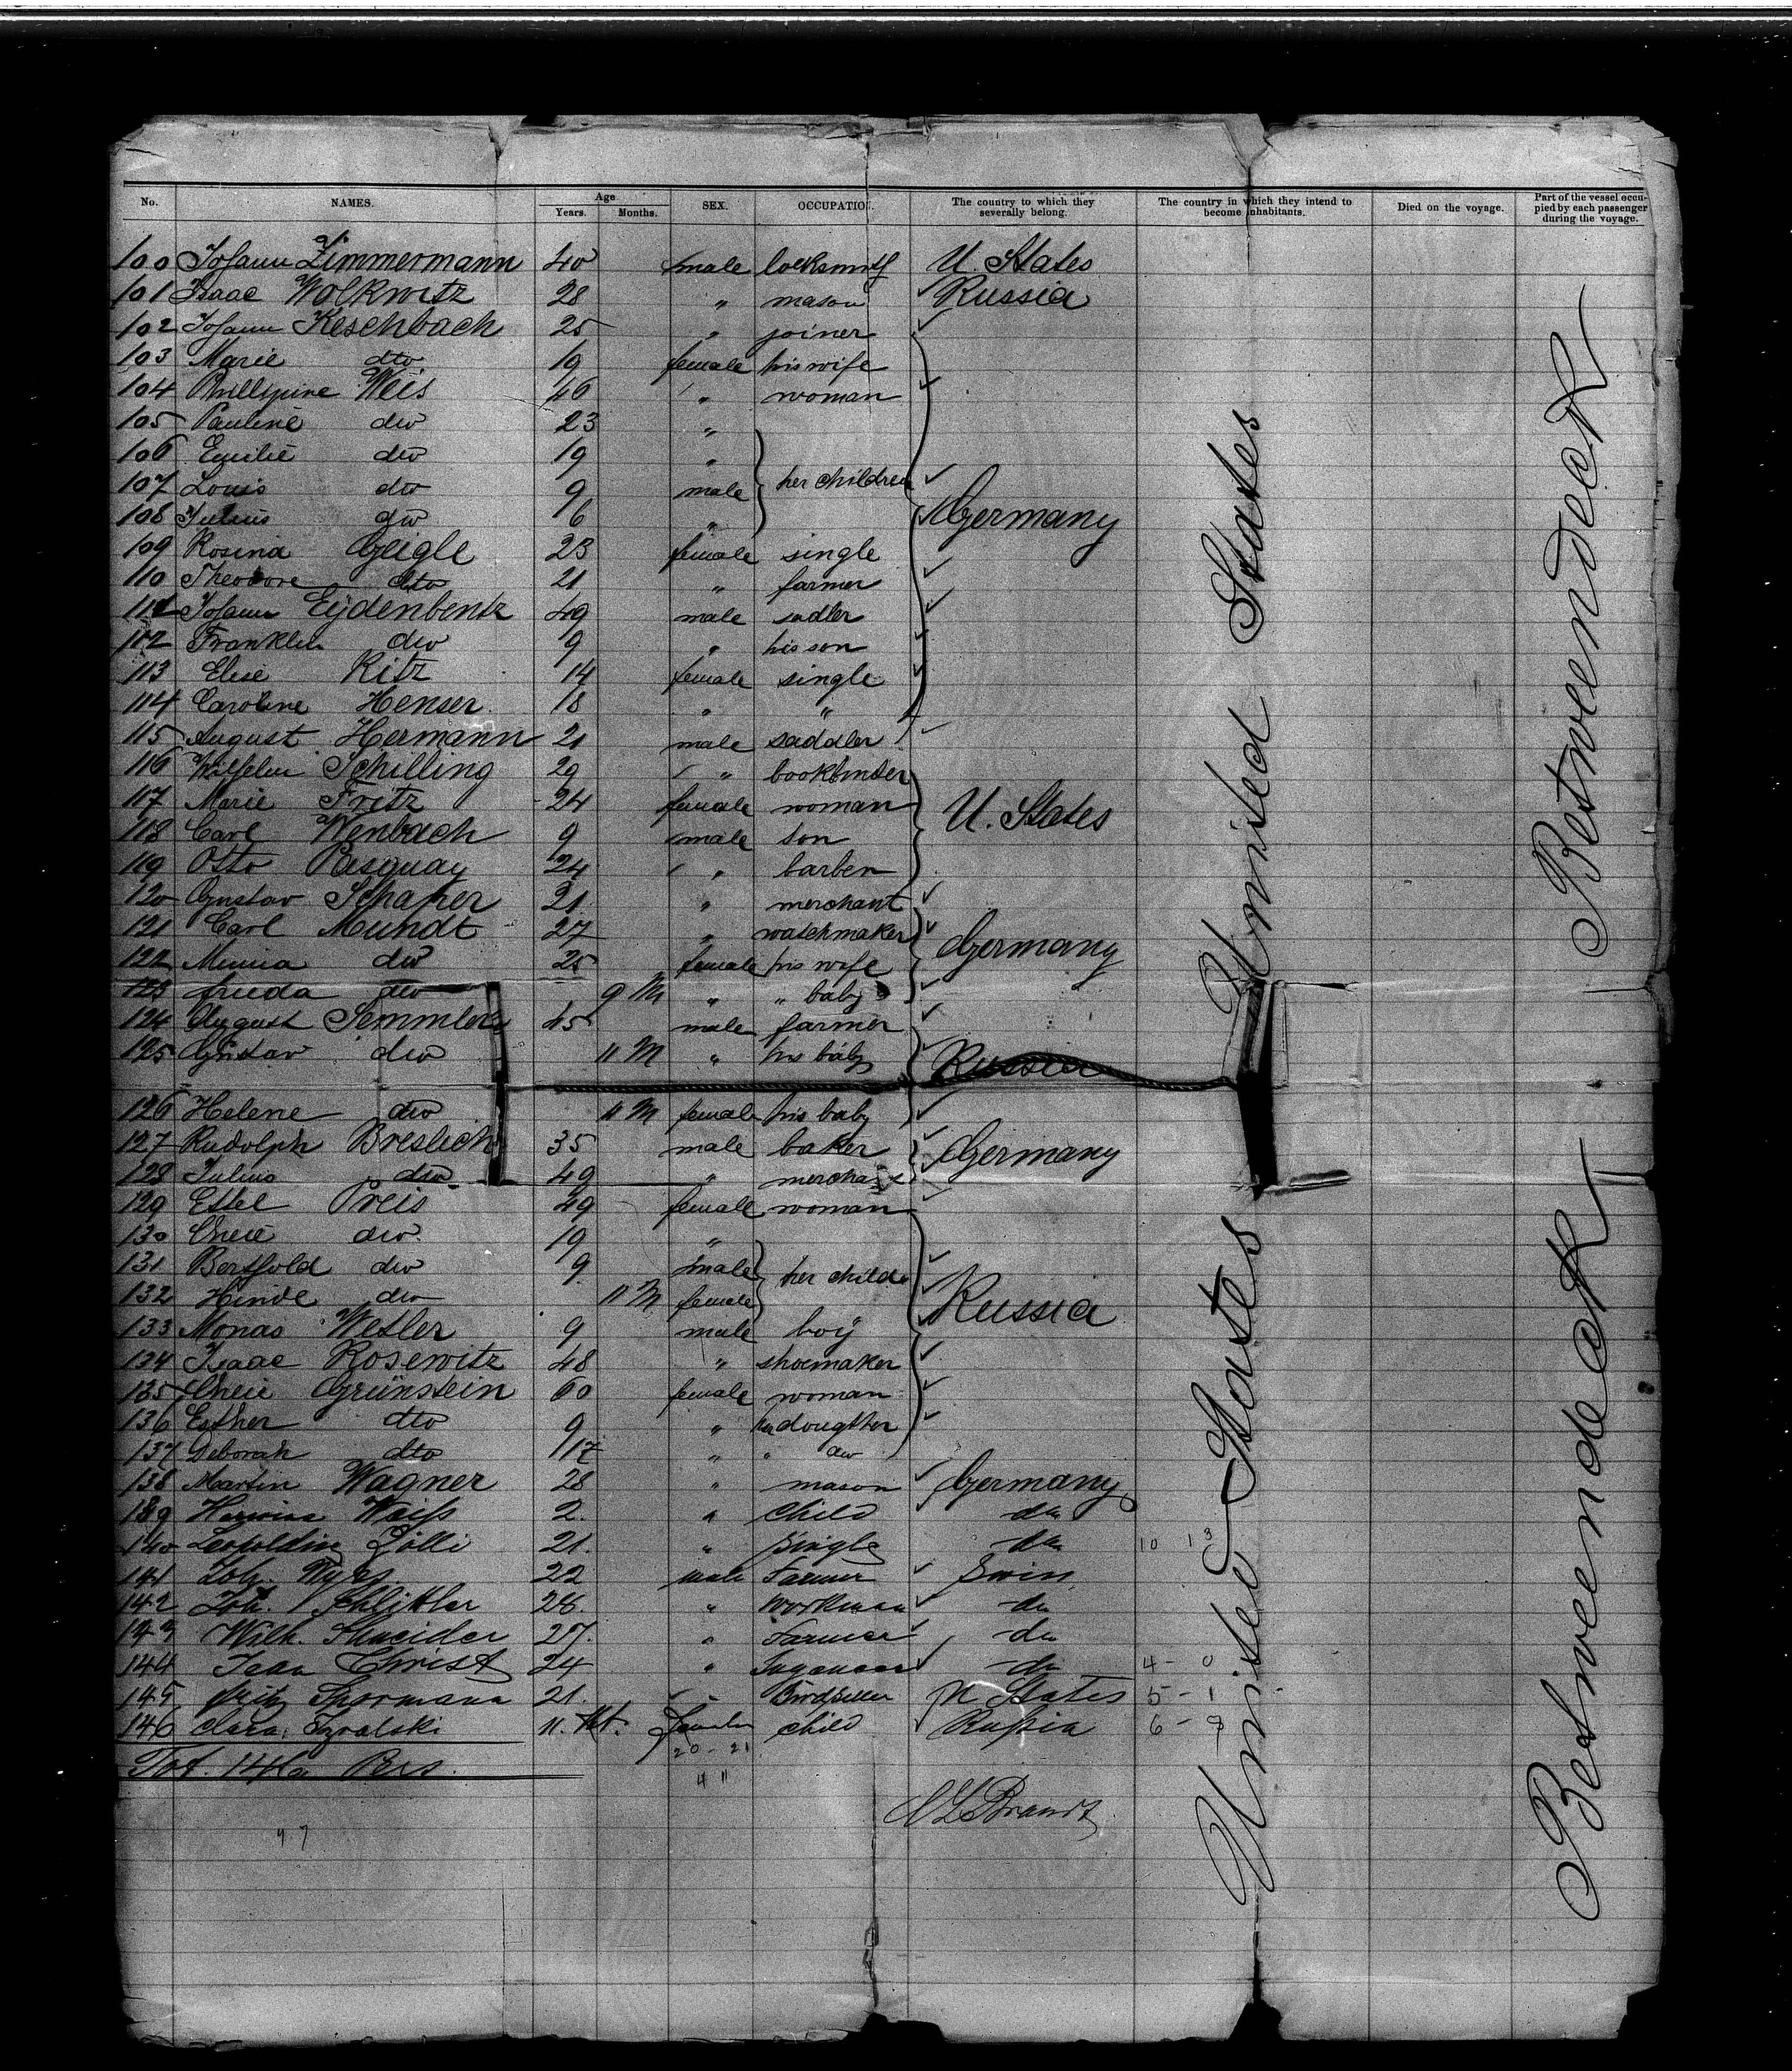 No. NAMES. Age Years. Months. SEX. OCCUPATION. The country to which they severally belong. The country in which they intend to become inhabitants. Died on the voyage. Part of the vessel occupied by each passenger during the voyage.
100 Johann Zimmermann 40 male locksmith U. States
101 Isaac Wolkwitz 28 " mason Russia
102 Johann Keschbach 25 " joiner
103 Marie dto 19 female his wife
104 Phillipine Weis 46 " woman
105 Pauline dto 23 "
106 Emilie dto 19 "
107 Louis dto 9 male her children
108 Julius dto 6 " Germany
109 Rosina Geigle 23 female single
110 Theodore dto 21 " farmer
111 Johann Eydenbentz 49 male sadler
112 Franklin dto 9 " his son
113 Elise Ritz 14 female single
114 Caroline Henser 18 " "
115 August Hermann 21 male saddler
116 Wilhelm Schilling 29 " bookbinder
117 Marie Fritz 24 female woman U. States
118 Carl Wenbach 9 male son
119 Otto Pasquay 24 " barber
120 Gustav Schafer 21 " merchant
121 Carl Mundt 27 " watchmaker
122 Minna dto 25 female his wife Germany
123 Frieda dto 9 M " " baby
124 August Semmler 45 male farmer
125 Gustav dto 11 M " his baby Russia
126 Helene dto 11 M female his baby
127 Rudolph Breslich 35 male baker Germany
128 Julius dto 49 " merchant
129 Estel Preis 49 female woman
130 Cheie dto 19 "
131 Berthold dto 9 male her child
132 Hinde dto 11 M female Russia
133 Monas Wesler 9 male boy
134 Isaac Rosewitz 48 " shoemaker
135 Cheie Grünstein 60 female woman
136 Esther dto 9 " her doughter
137 Deborah dto 17 " " dto
138 Martin Wagner 28 " mason Germany
139 Weiss 2 " child dto
140 Leopoldine Zolli 21. " single dto 10 13
141 Joh. 22 male Farmer Swiss
142 Joh. Schlittler 28. " workman do
143 Wilh. Shneider 27. " Farmer do
144 Jean Christ 24 " do 4 - 0
145 Fritz Thormann 21. " Birdseller U States 5 - 1
146 Clara 11. Mt. female child Russia 6 - 9
Tot. 146 Pers. 20 - 21
4 11
Brandt
47
United States
United States
Betweendeck
Betweendeck